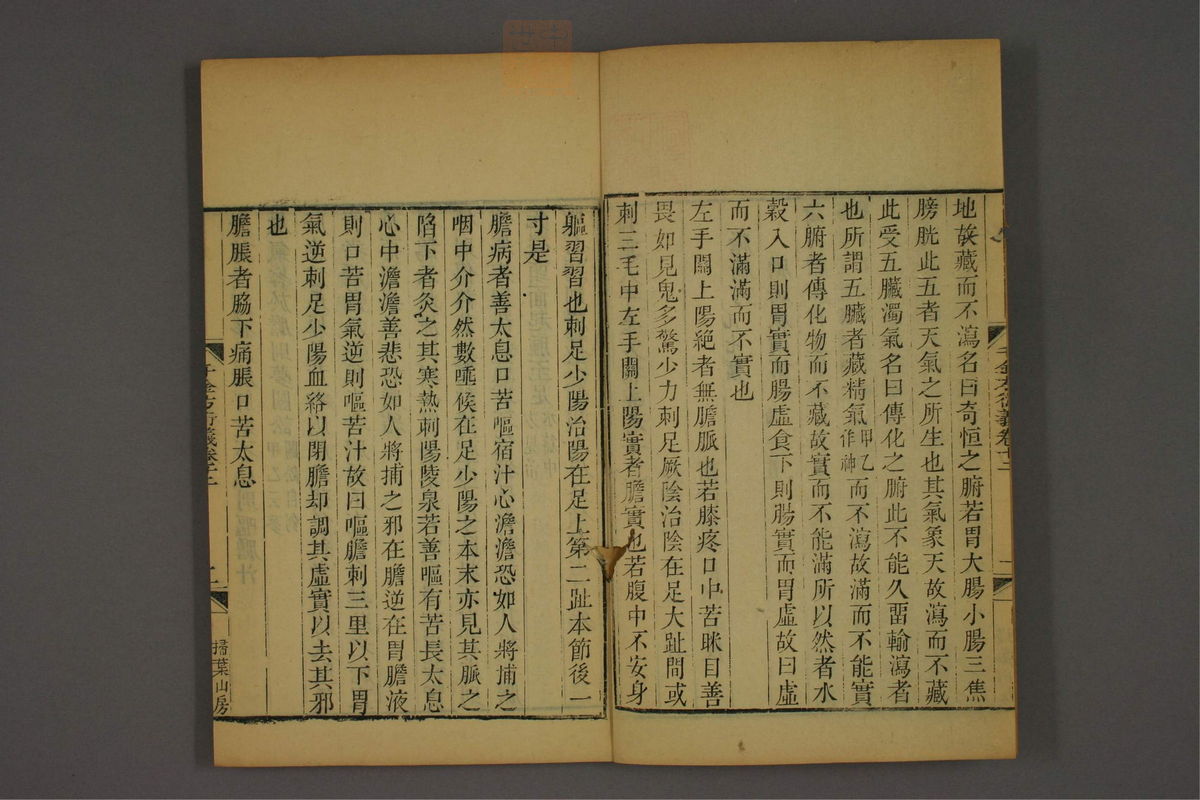 地故藏而不瀉名曰奇恒之腑若胃大腸小腸三焦
膀胱此五者天氣之所生也其氣象天故瀉而不藏
此受五臟濁氣名曰傳化之腑此不能久畱輸瀉者
也所謂五臟者藏精氣甲乙作神而不瀉故滿而不能實
六腑者傳化物而不藏故實而不能滿所以然者水
穀入口則胃實而腸虛食下則腸實而胃虛故曰虛
而不滿滿而不實也
左手關上陽絶者無膽脈也若膝疼口中苦眯目善
畏如見鬼多驚少力刺足厥陰治陰在足大趾間或
刺三毛中左手關上陽實者膽實也若腹中不安身
軀習習也刺足少陽治陽在足上第二趾本節後一
寸是
膽病者善太息口苦嘔宿汁心澹澹恐如人將捕之
咽中介介然數唾候在足少陽之本末亦見其脈之
陷下者灸之其寒熱刺陽陵泉若善嘔有苦長太息
心中澹澹善悲恐如人將捕之邪在膽逆在胃膽液
則口苦胃氣逆則嘔苦汁故曰嘔膽刺三里以下胃
氣逆刺足少陽血絡以閉膽却調其虛實以去其邪
也
膽脹者脇下痛脹口苦太息
千金方衍義卷十二
二
掃葉山房